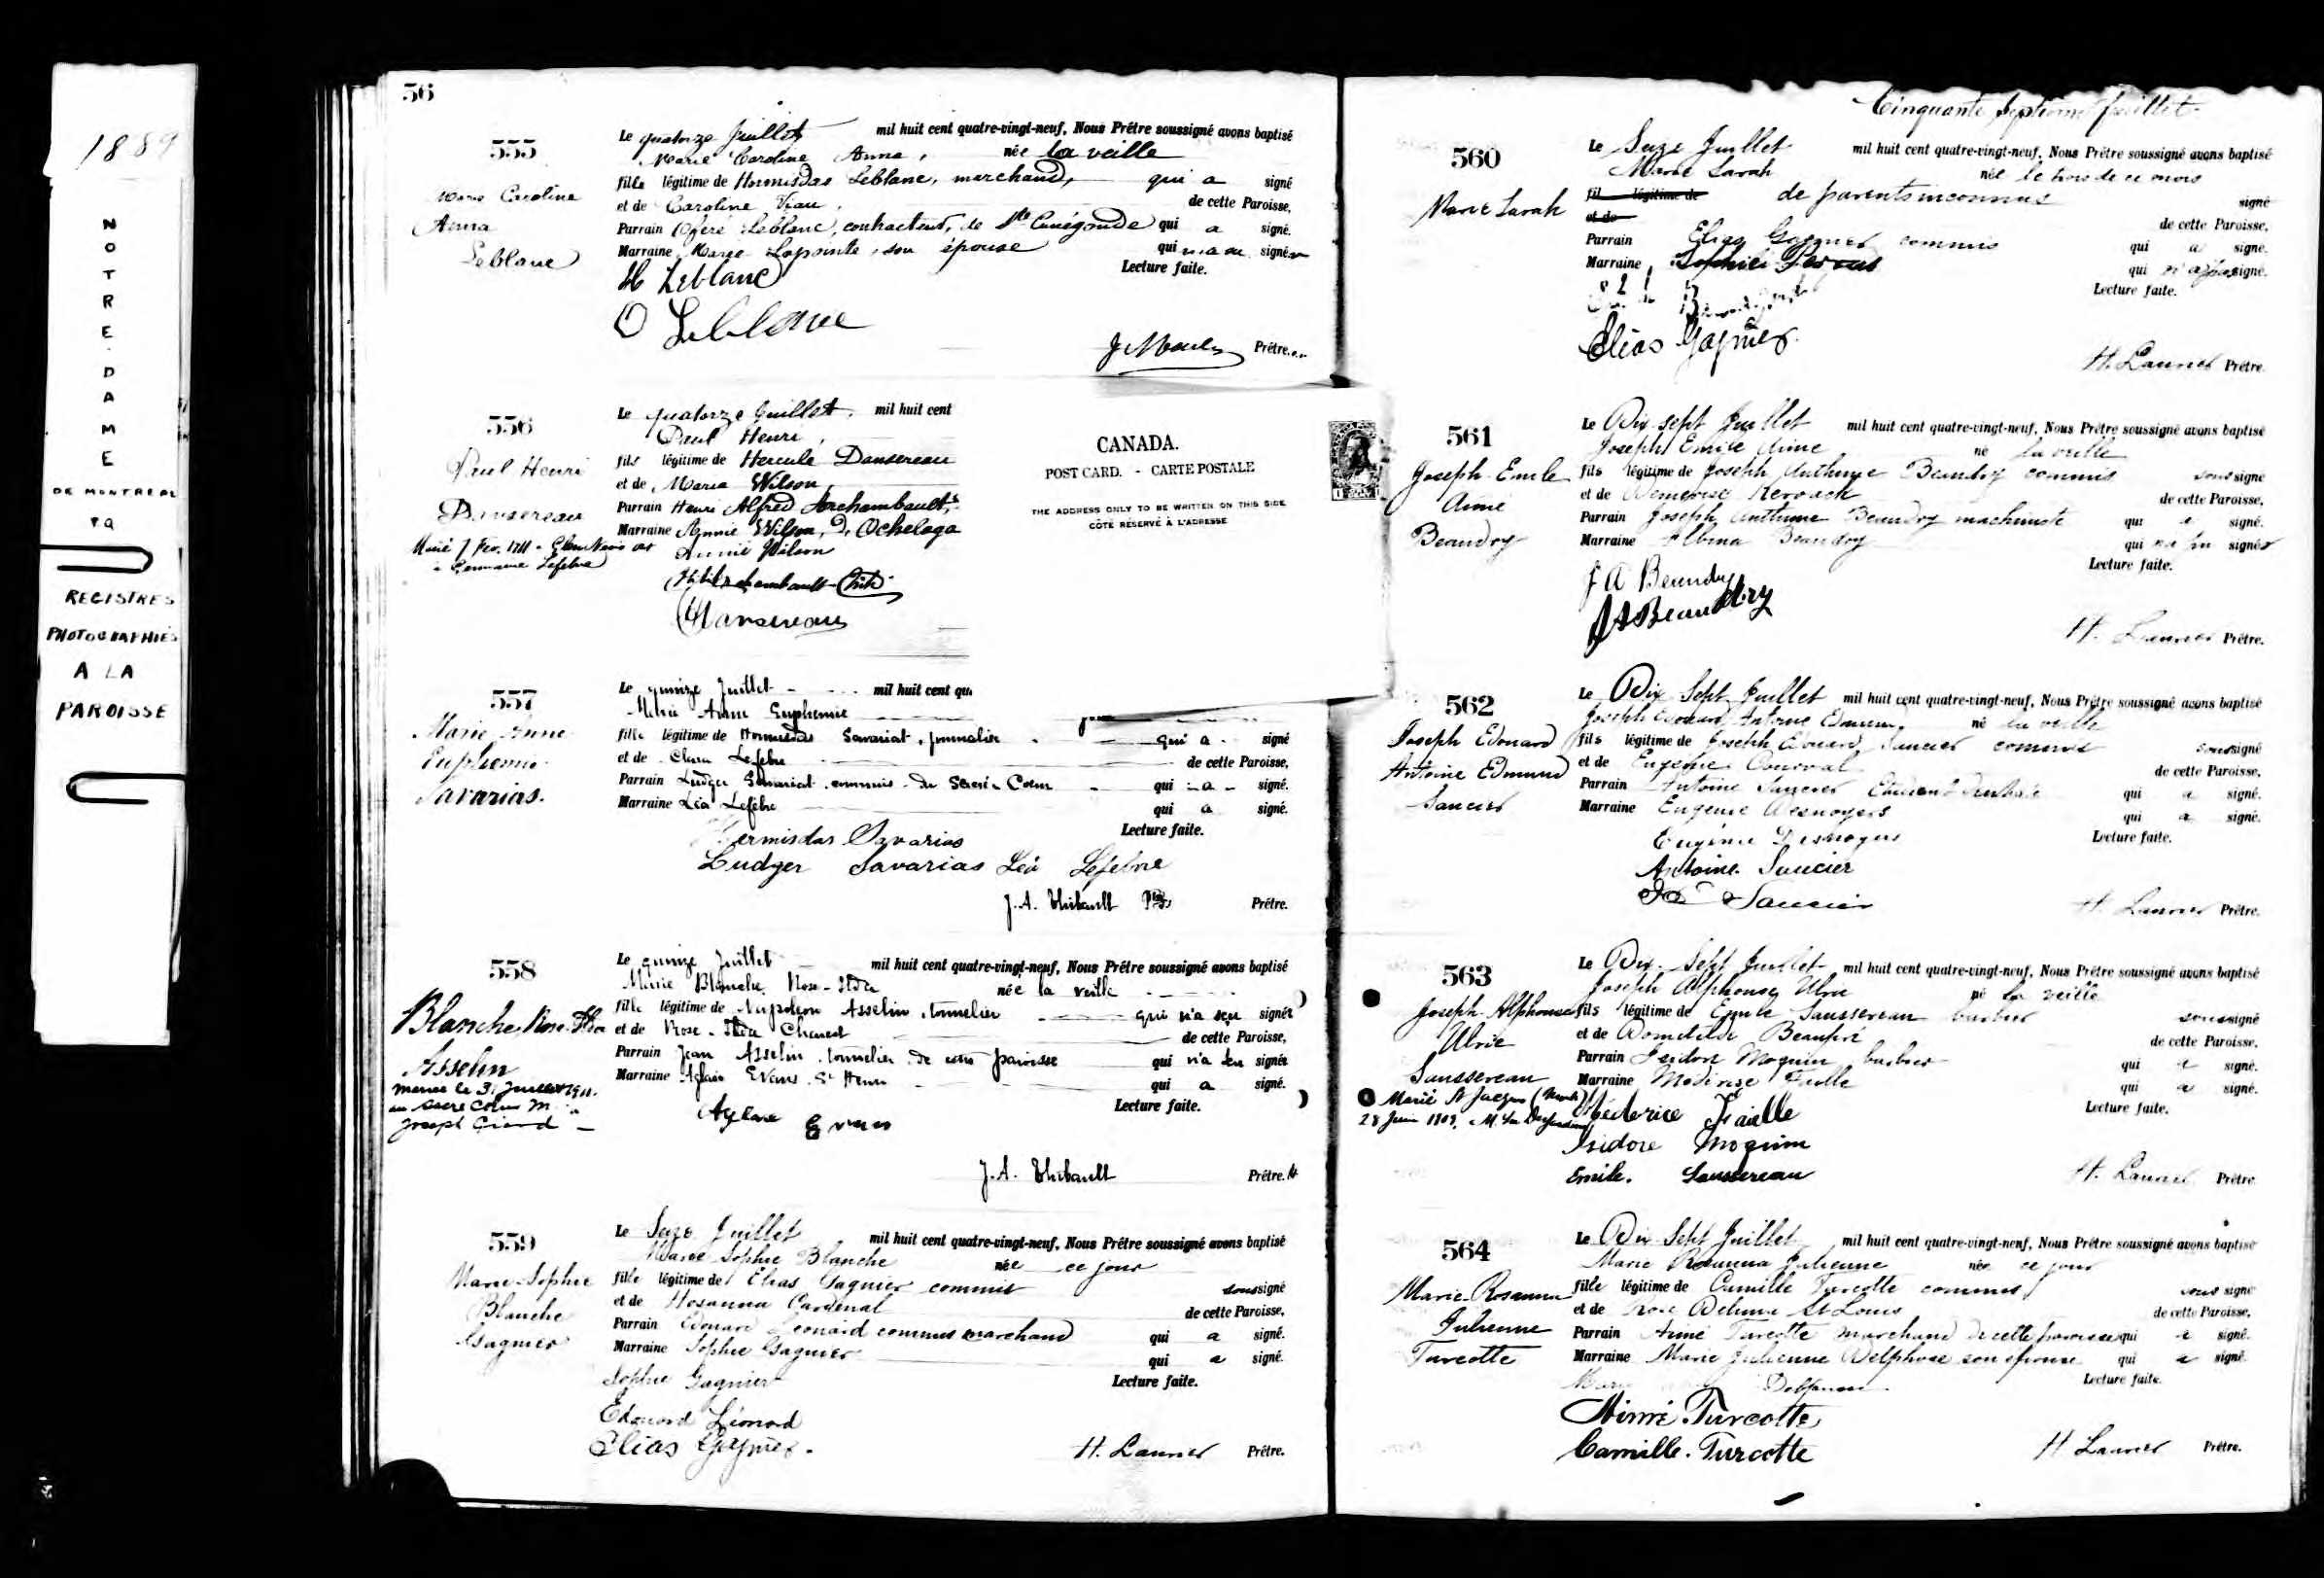 1889
NOTRE-DAME
DE MONTREAL
PQ
REGISTRES
PHOTOGRAPHIÉS
A LA
PAROISSE
56
555
Marie Caroline
Anna
Leblanc
Le quatorze Juillet mil huit cent quatre-vingt-neuf, Nous Prêtre soussigné avons baptisé
Marie Caroline Anna, née la veille
fille légitime de Hormisdas Leblanc, marchand, qui a signé
et de Caroline Viau, de cette Paroisse,
Parrain Leblanc, contracteur, de Ste Cunégonde qui a signé.
Marraine Marie Lapointe, son épouse qui n'a su signer
Lecture faite.
H Leblanc
O Leblanc
Prêtre
556
Paul Henri
Dansereau
Marié 7 Fév.
à Germaine Lefebvre
Le quatorze Juillet, mil huit cent
Paul Henri,
fils légitime de Hercule Dansereau
et de Maria Wilson,
Parrain Henri Alfred Archambault,
Marraine Annie Wilson, d'Ochelaga
Annie Wilson
Dansereau
CANADA.
POST CARD. - CARTE POSTALE
THE ADDRESS ONLY TO BE WRITTEN ON THIS SIDE
CÔTÉ RÉSERVÉ À L'ADRESSE
557
Marie Anne
Euphémie
Savarias.
Le quinze Juillet mil huit cent qu
Marie Anne Euphémie
fille légitime de Hormisdas Savariat, journalier qui a signé
et de Clara Lefebre de cette Paroisse,
Parrain Ludger Savariat commis du Sacré-Coeur qui a signé.
Marraine Léa Lefebre qui a signé.
Lecture faite.
Hermisdas Savarias
Ludger Savarias Léa Lefebvre
J. A. Thibault Prêtre.
558
Blanche Rose
Asselin
mariée le 31 Juillet
au Sacré Coeur
Joseph Girard
Le quinze Juillet mil huit cent quatre-vingt-neuf, Nous Prêtre soussigné avons baptisé
Marie Blanche Rose née la veille
fille légitime de Napoléon Asselin, tonnelier qui n'a su signer
et de Rose de cette Paroisse,
Parrain Jean Asselin, tonnelier de cette paroisse qui n'a su signer
Marraine Aglaé Evans St Henri qui a signé.
Lecture faite.
Evans
J. A. Thibault Prêtre.
559
Marie-Sophie
Blanche
Gagnier
Le Seize Juillet mil huit cent quatre-vingt-neuf, Nous Prêtre soussigné avons baptisé
Marie Sophie Blanche née ce jour
fille légitime de Elias Gagnier commis soussigné
et de Hosanna Cardinal de cette Paroisse,
Parrain Edouard Léonard commis marchand qui a signé.
Marraine Sophie Gagnier qui a signé.
Lecture faite.
Sophie Gagnier
Edouard Léonard
Elias Gagnier.
H. Prêtre.
Cinquante septième feuillet
560
Marie Sarah
Le Seize Juillet mil huit cent quatre-vingt-neuf, Nous Prêtre soussigné avons baptisé
Marie Sarah née le trois de ce mois
fil légitime de de parents inconnus signé
et de de cette Paroisse,
Parrain Elias Gagnier commis qui a signé.
Marraine Sophie qui n'a pas signé.
Lecture faite.
Elias Gagnier
H. Prêtre.
561
Joseph Emile
Aimé
Beaudry
Le Dix-sept Juillet mil huit cent quatre-vingt-neuf, Nous Prêtre soussigné avons baptisé
Joseph Emile Aimé né la veille
fils légitime de Joseph Anthime Beaudry commis soussigné
et de de cette Paroisse,
Parrain Joseph Anthime Beaudry machiniste qui a signé.
Marraine Albina Beaudry qui n'a su signer
Lecture faite.
J A Beaudry
J A Beaudry
H. Prêtre.
562
Joseph Edouard
Antoine Edmund
Saucier
Le Dix Sept Juillet mil huit cent quatre-vingt-neuf, Nous Prêtre soussigné avons baptisé
Joseph Edouard Antoine Edmund né la veille
fils légitime de Joseph Edouard Saucier commis soussigné
et de Eugénie Courval de cette Paroisse,
Parrain Antoine Saucier qui a signé.
Marraine Eugénie Desnoyers qui a signé.
Lecture faite.
Eugénie Desnoyers
Antoine Saucier
Saucier
H. Prêtre.
563
Joseph Alphonse
Ulric
Sanssereau
Marié St Jacques
28 Juin 1909.
Le Dix-Sept Juillet mil huit cent quatre-vingt-neuf, Nous Prêtre soussigné avons baptisé
Joseph Alphonse Ulric né la veille
fils légitime de Emile Sanssereau barbier soussigné
et de Domitilde Beaupré de cette Paroisse,
Parrain Isidore Moquin, barbier qui a signé.
Marraine Faille qui a signé.
Lecture faite.
Faille
Isidore Moquin
Emile. Sanssereau
H. Prêtre
564
Marie-Rosanna
Julienne
Turcotte
Le Dix-Sept Juillet mil huit cent quatre-vingt-neuf, Nous Prêtre soussigné avons baptisé
Marie Rosanna Julienne née ce jour
fille légitime de Camille Turcotte commis soussigné
et de Rose Delima St Louis de cette Paroisse,
Parrain Aimé Turcotte marchand de cette paroisse qui a signé.
Marraine Marie Julienne Delphose son épouse qui a signé.
Lecture faite.
Aimé Turcotte
Camille Turcotte
H. Prêtre.